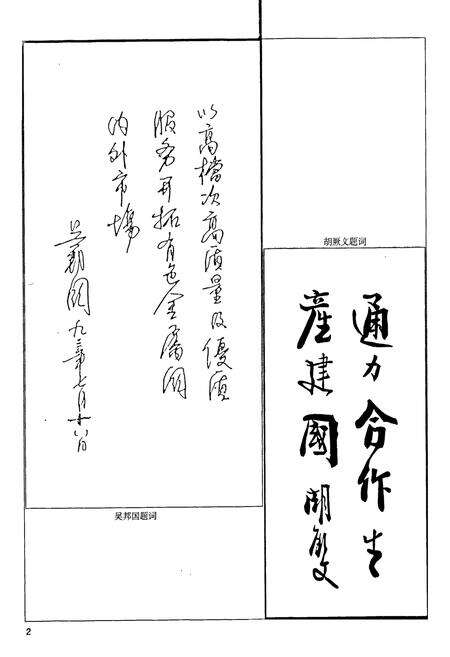 以高檔次高质量及優质
服务开拓有色金属国
内外市場
吴邦国九三年七月十八日
吴邦国题词
胡厥文题词
通力合作生
產建國 胡厥文
2